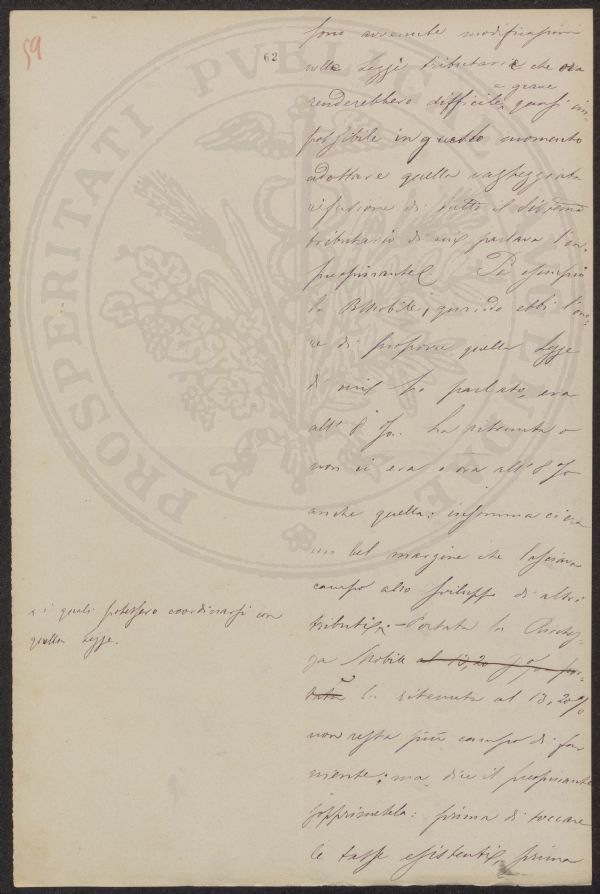 59
62
sono avvenute modificazioni
nelle Leggi tributarie che ora
e grave
renderebbero difficile, quasi im-
possibile in questo momento
adottare quella vagheggiata
rifusione di tutto il sistema
tributario di cui parlava l'on.
preopinante. Per esempio
la R. Mobile, quando ebbi l'ono-
re di proporre quella legge
di cui ho parlato, era
all' 8 %. La ritenuta o
non vi era o era all' 8 %
anche quella: insomma ci era
un bel margine che lasciava
campo allo sviluppo di altri
tributi x. - Portata la Ricchez-
za Mobile al 13,20 % por-
tata la ritenuta al 13,20 %
non resta più campo di far
niente; ma, dice il preopinante
sopprimetela: prima di toccare
le tasse esistenti, prima
x i quali potessero coordinarsi con
quella legge.
PROSPERITATI PVBLICAE